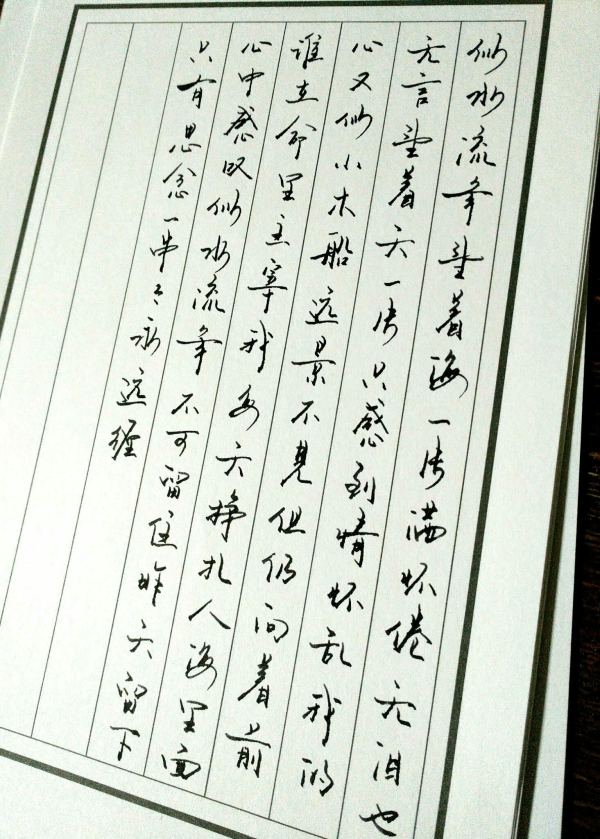 似水流年望着海一片满怀倦无泪也
无言望着天一片只感到情怀乱我的
心又似小木船远景不见但仍向着前
谁在命里主宰我每天挣扎人海里面
心中感叹似水流年不可留住昨天留下
只有思念一串々永远缠